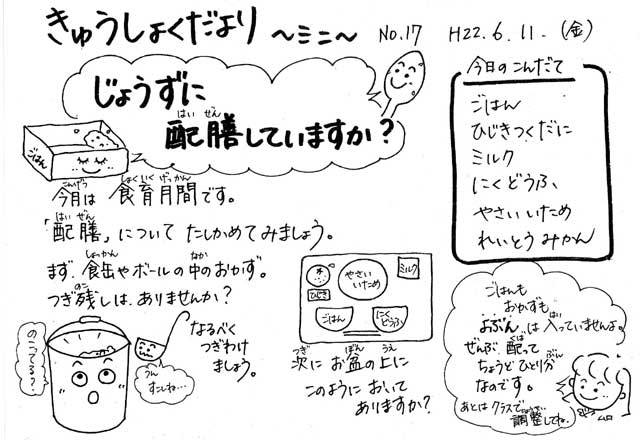 きゅうしょくだより ～ミニ～ No.17 H22.6.11.(金)
じょうずに
配膳していますか？
はいぜん
ごはん
今月は 食育月間です。
こんげつ しょくいくげっかん
「配膳」について たしかめてみましょう。
はいぜん
まず 食缶やボールの中のおかず。
しょっかん なか
つぎ残しは、ありませんか？
のこ
のこってる？
うん すこしね…
なるべく
つぎわけ
ましょう。
やさい
いため
ミルク
ひじき
ごはん
にく
どうふ
次に お盆の上に
つぎ ぼん うえ
このように おいて
ありますか？
今日のこんだて
ごはん
ひじきつくだに
ミルク
にくどうふ
やさいいため
れいとうみかん
ごはんも
おかずも
よぶんは入っていませんよ。
はい
ぜんぶ 配って
くば
ちょうど ひとり分
ぶん
なのです。
あとは クラスで
調整してね。
ちょうせい